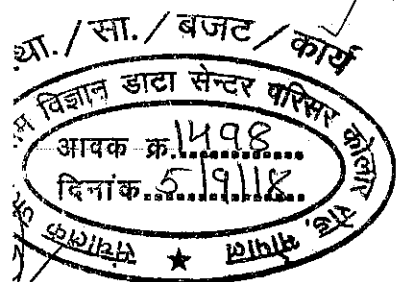 था. / सा. / बजट / कार्य
विज्ञान डाटा सेन्टर परिसर कोलार रोड, भोपाल
आवक क्र. 1498
दिनांक 5/9/18
संचालक